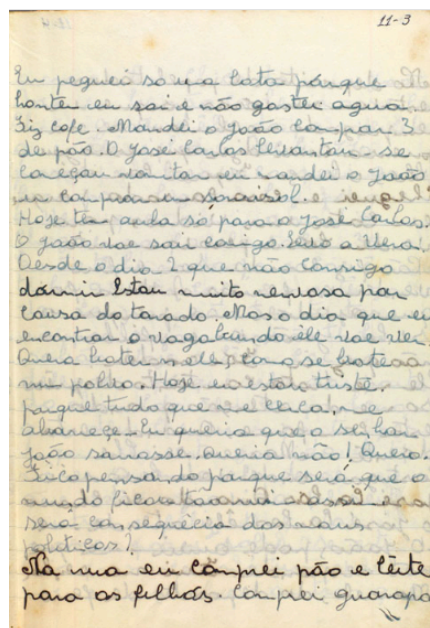 11-3
Eu peguei so uma lata porque
honten eu sai e não gastei agua.
Fiz cafe. Mandei o João comprar 3
de pão. O José Carlos levantou-se
começou vomitar eu mandei o João
ir comprar um sonrisol. e
Hoje tem aula só para o José Carlos.
O João vae sair comigo. Levo a Vera.
Desde o dia 2 que não consigo
dormir Estou muito nervosa por
causa do tarado. Mas o dia que eu
encontrar o vagabundo êle vae ver.
Quero bater nele, como se bate
num polvo. Hoje eu estou triste.
porque tudo que me cerca, me
aborreçe. Eu queria que o senhor
João sarasse. Queria não! Quero.
Fico pensando porque será que o
mundo ficou
será consequêcia dos maus
politicos?
Na rua eu comprei pão e lêite
para os filhos. Comprei guarapa